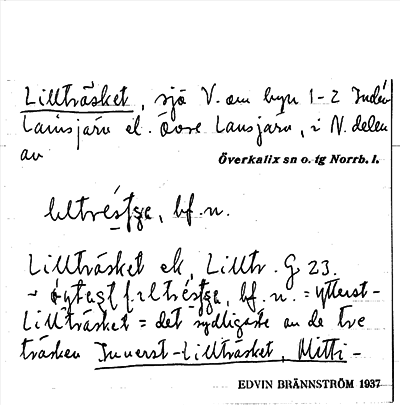 Lillträsket, sjö V. om byn 1-2 Inden
Lansjärv el. Övre Lansjärv, i N. delen
av
Överkalix sn o. tg Norrb. l.
bf. n.
Lillträsket ek, Lilltr. G 23.
bf. n. = ytterst-
Lillträsket = det sydligaste av de tre
träsken Innerst-Lillträsket, Mitti-
EDVIN BRÄNNSTRÖM 1937